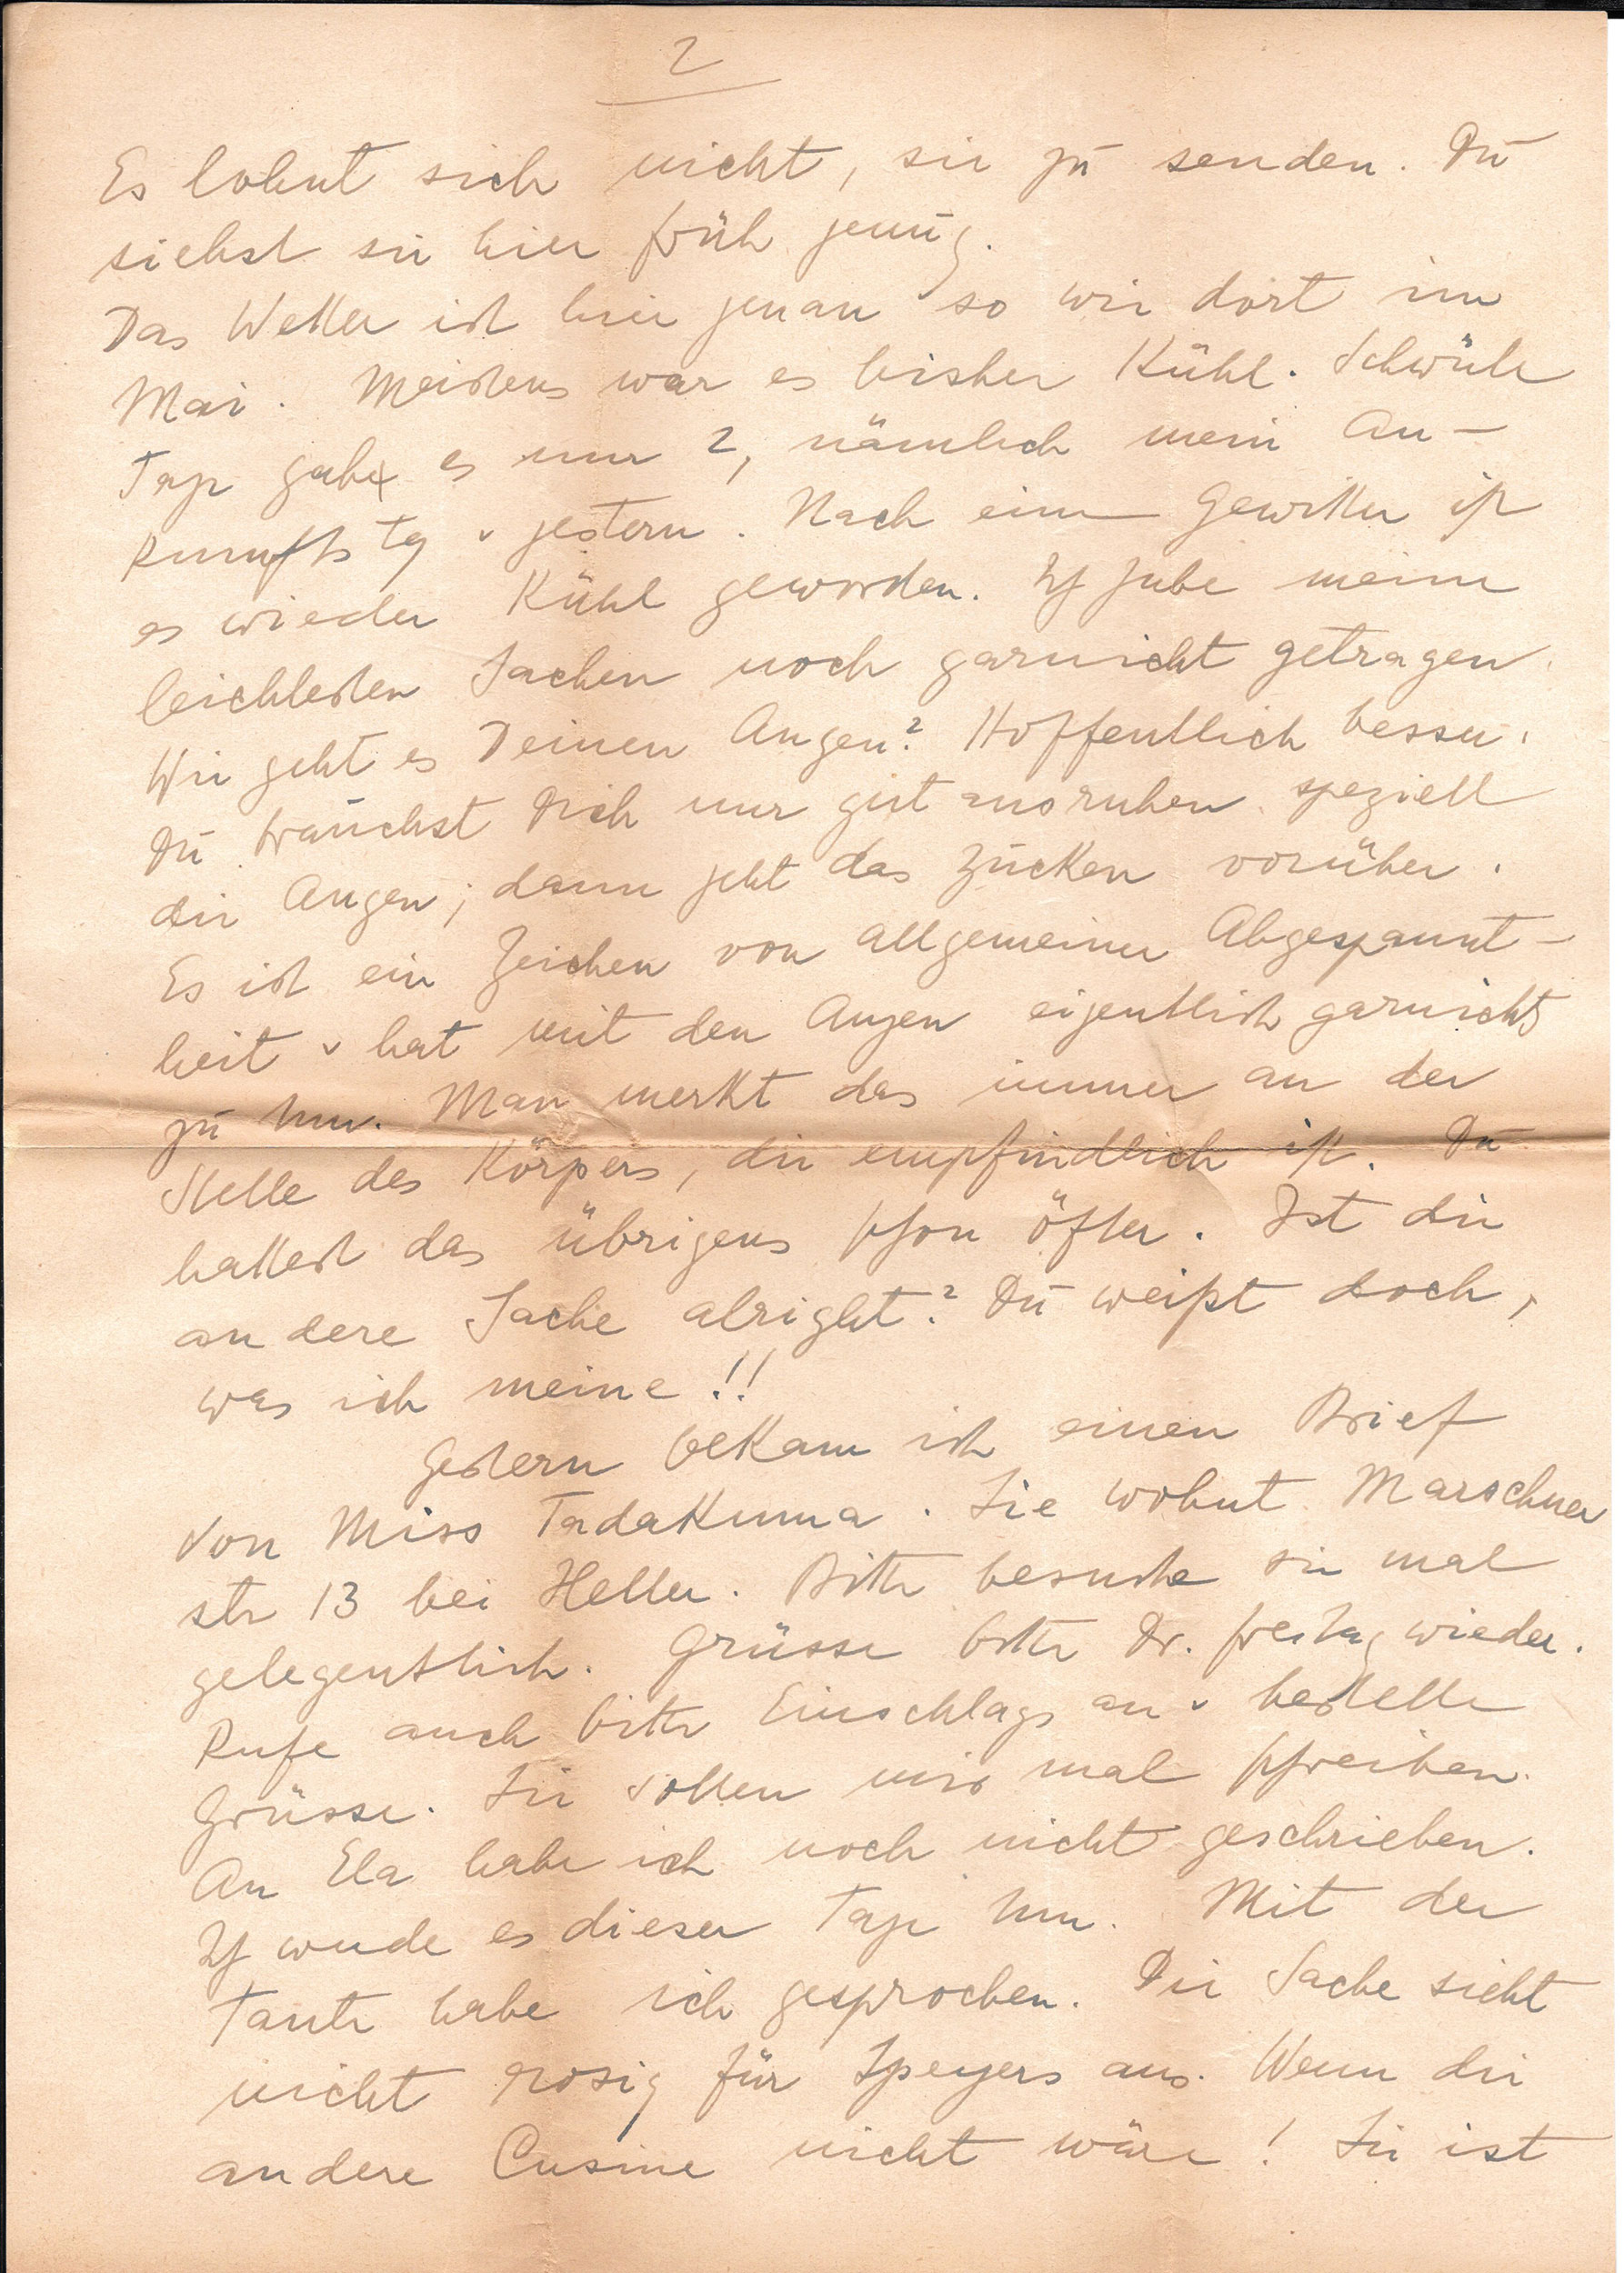 2
Es lohnt sich nicht, sie zu senden. Du
siehst sie hier früh genug.
Das Wetter ist hier genau so wie dort im
Mai. Meistens war es bisher kühl. Schwüle
Tage gab es nur 2, nämlich mein An-
kunfts tg u gestern. Nach einem Gewitter ist
es wieder kühl geworden. Ich habe meine
leichtesten Sachen noch garnicht getragen.
Wie geht es Deinen Augen? Hoffentlich besser.
Du brauchst Dich nur gut ausruhen speziell
die Augen; dann geht das Zucken vorüber.
Es ist ein Zeichen von allgemeiner Abgespannt-
heit u hat mit den Augen eigentlich garnichts
zu tun. Man merkt das immer an der
Stelle des Körpers, die empfindlich ist. Du
hattest das übrigens schon öfter. Ist die
andere Sache alright? Du weißt doch,
was ich meine!!
Gestern bekam ich einen Brief
von Miss Tadakuma. Sie wohnt Marschner
str 13 bei Heller. Bitte besuche sie mal
gelegentlich. Grüsse bitte Dr. Freitag wieder.
Rufe auch bitte Einschlags an u bestelle
Grüsse. Sie sollen mir mal schreiben.
An Ela habe ich noch nicht geschrieben.
Ich werde es dieser Tage tun. Mit der
Tante habe ich gesprochen. Die Sache sieht
nicht rosig für Speyers aus. Wenn die
andere Cusine nicht wäre! Sie ist